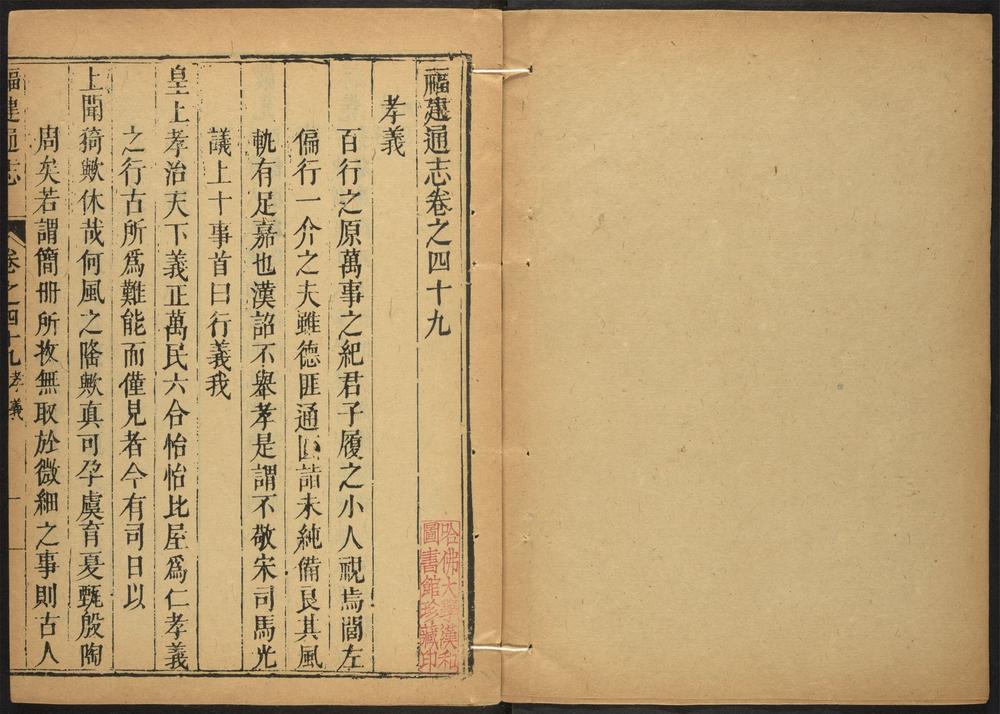 福建通志卷之四十九
孝義
百行之原萬事之紀君子履之小人視焉閭左
偏行一介之夫雖德匪通詣未純備艮其風
軌有足嘉也漢詔不舉孝是謂不敬宋司馬光
議上十事首曰行義我
皇上孝治天下義正萬民六合怡怡比屋為仁孝義
之行古所為難能而僅見者今有司日以
上聞猗歟休哉何風之隆歟真可孕虞育夏甄殷陶
周矣若謂簡冊所取無取於微細之事則古人
福建通志 卷之四十九 孝義 一
哈佛大學漢和
圖書館珍藏印